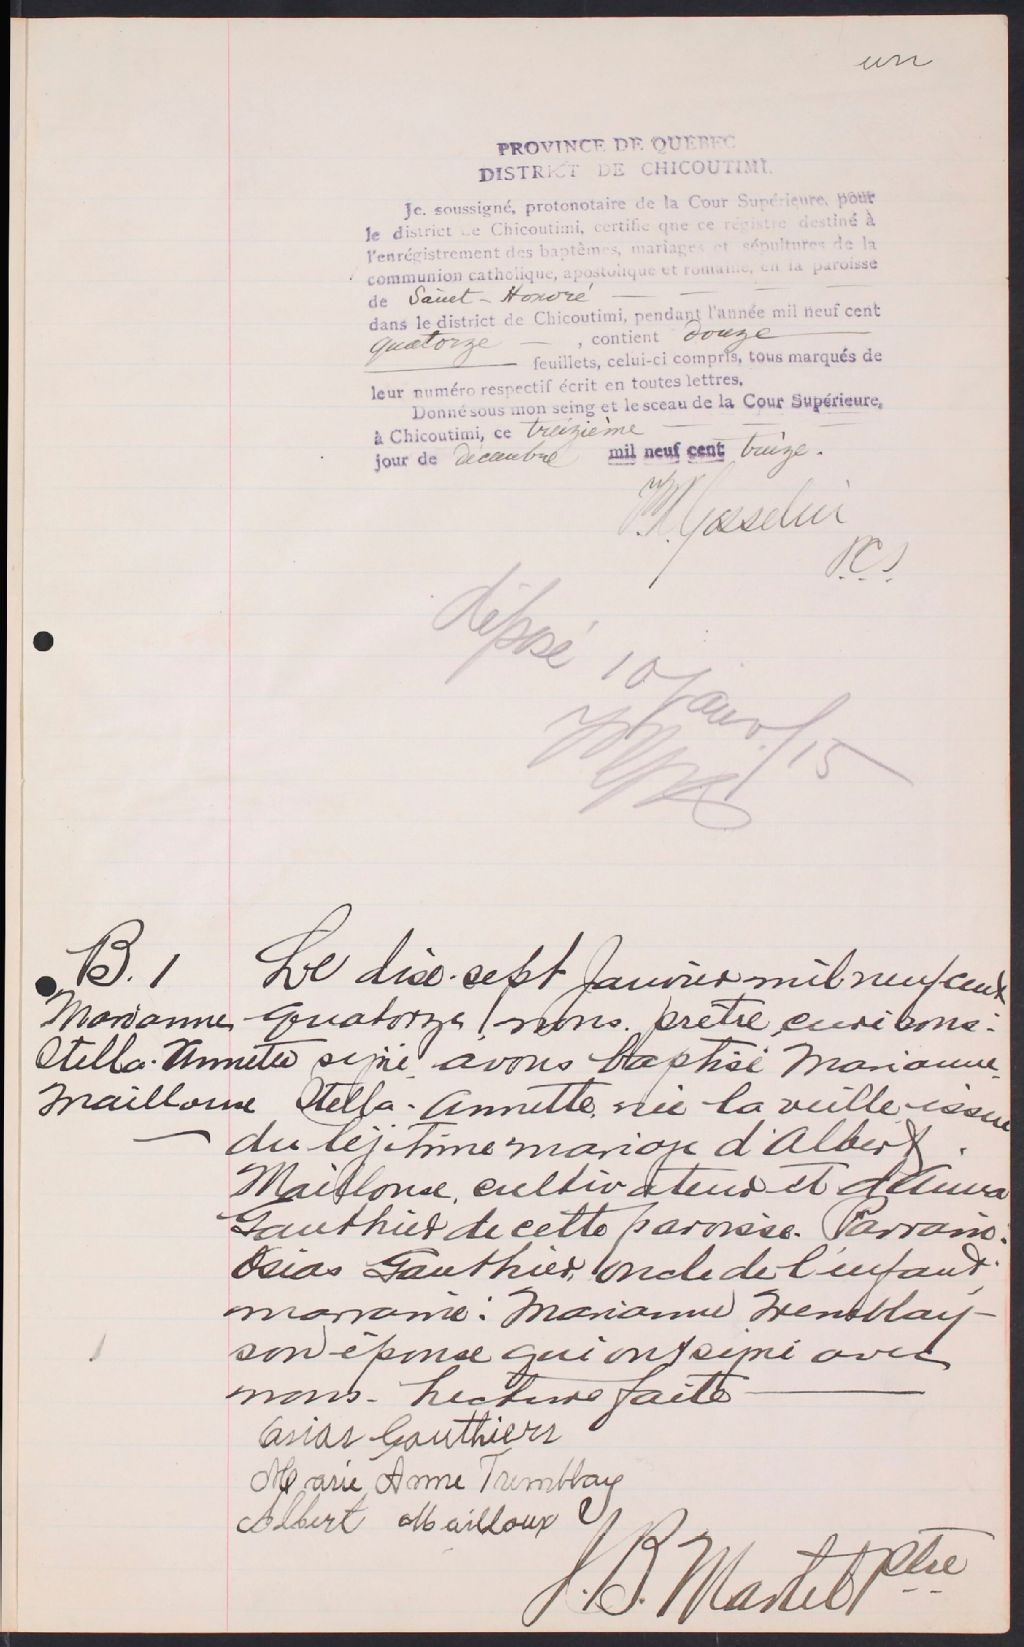 un
PROVINCE DE QUEBEC
DISTRICT DE CHICOUTIMI.
Je, soussigné, protonotaire de la Cour Supérieure, pour
le district de Chicoutimi, certifie que ce régistre destiné à
l'enrégistrement des baptêmes, mariages et sépultures de la
communion catholique, apostolique et romaine, en la paroisse
de Saint-Honoré
dans le district de Chicoutimi, pendant l'année mil neuf cent
quatorze —, contient douze
feuillets, celui-ci compris, tous marqués de
leur numéro respectif écrit en toutes lettres.
Donné sous mon seing et le sceau de la Cour Supérieure,
à Chicoutimi, ce treizième
jour de décembre mil neuf cent treize.
Gosselin
P.C.S.
déposé 10 janv/15
B. 1
Marianne
Stella-Annette
Mailloux
Le dix-sept Janvier mil neuf cent
quatorze, nous prêtre, curé sous-
signé avons baptisé Marianne-
Stella-Annette, née la veille, issue
du légitime mariage d'Albert
Mailloux, cultivateur et d'Auera
Gauthier de cette paroisse. Parrain:
Osias Gauthier, oncle de l'enfant.
marraine: Marianne Tremblay
son épouse qui ont signé avec
nous. Lecture faite
Osias Gauthiers
Marie Anne Tremblay
Albert Mailloux
J. B. Martel Ptre